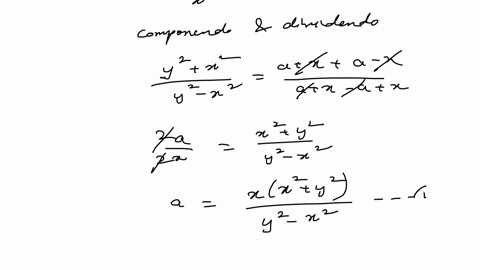 x
componendo & dividendo
y² + x² / y² - x² = a + x + a - x / a + x - a + x
2a / 2x = x² + y² / y² - x²
a = x(x² + y²) / y² - x² ---